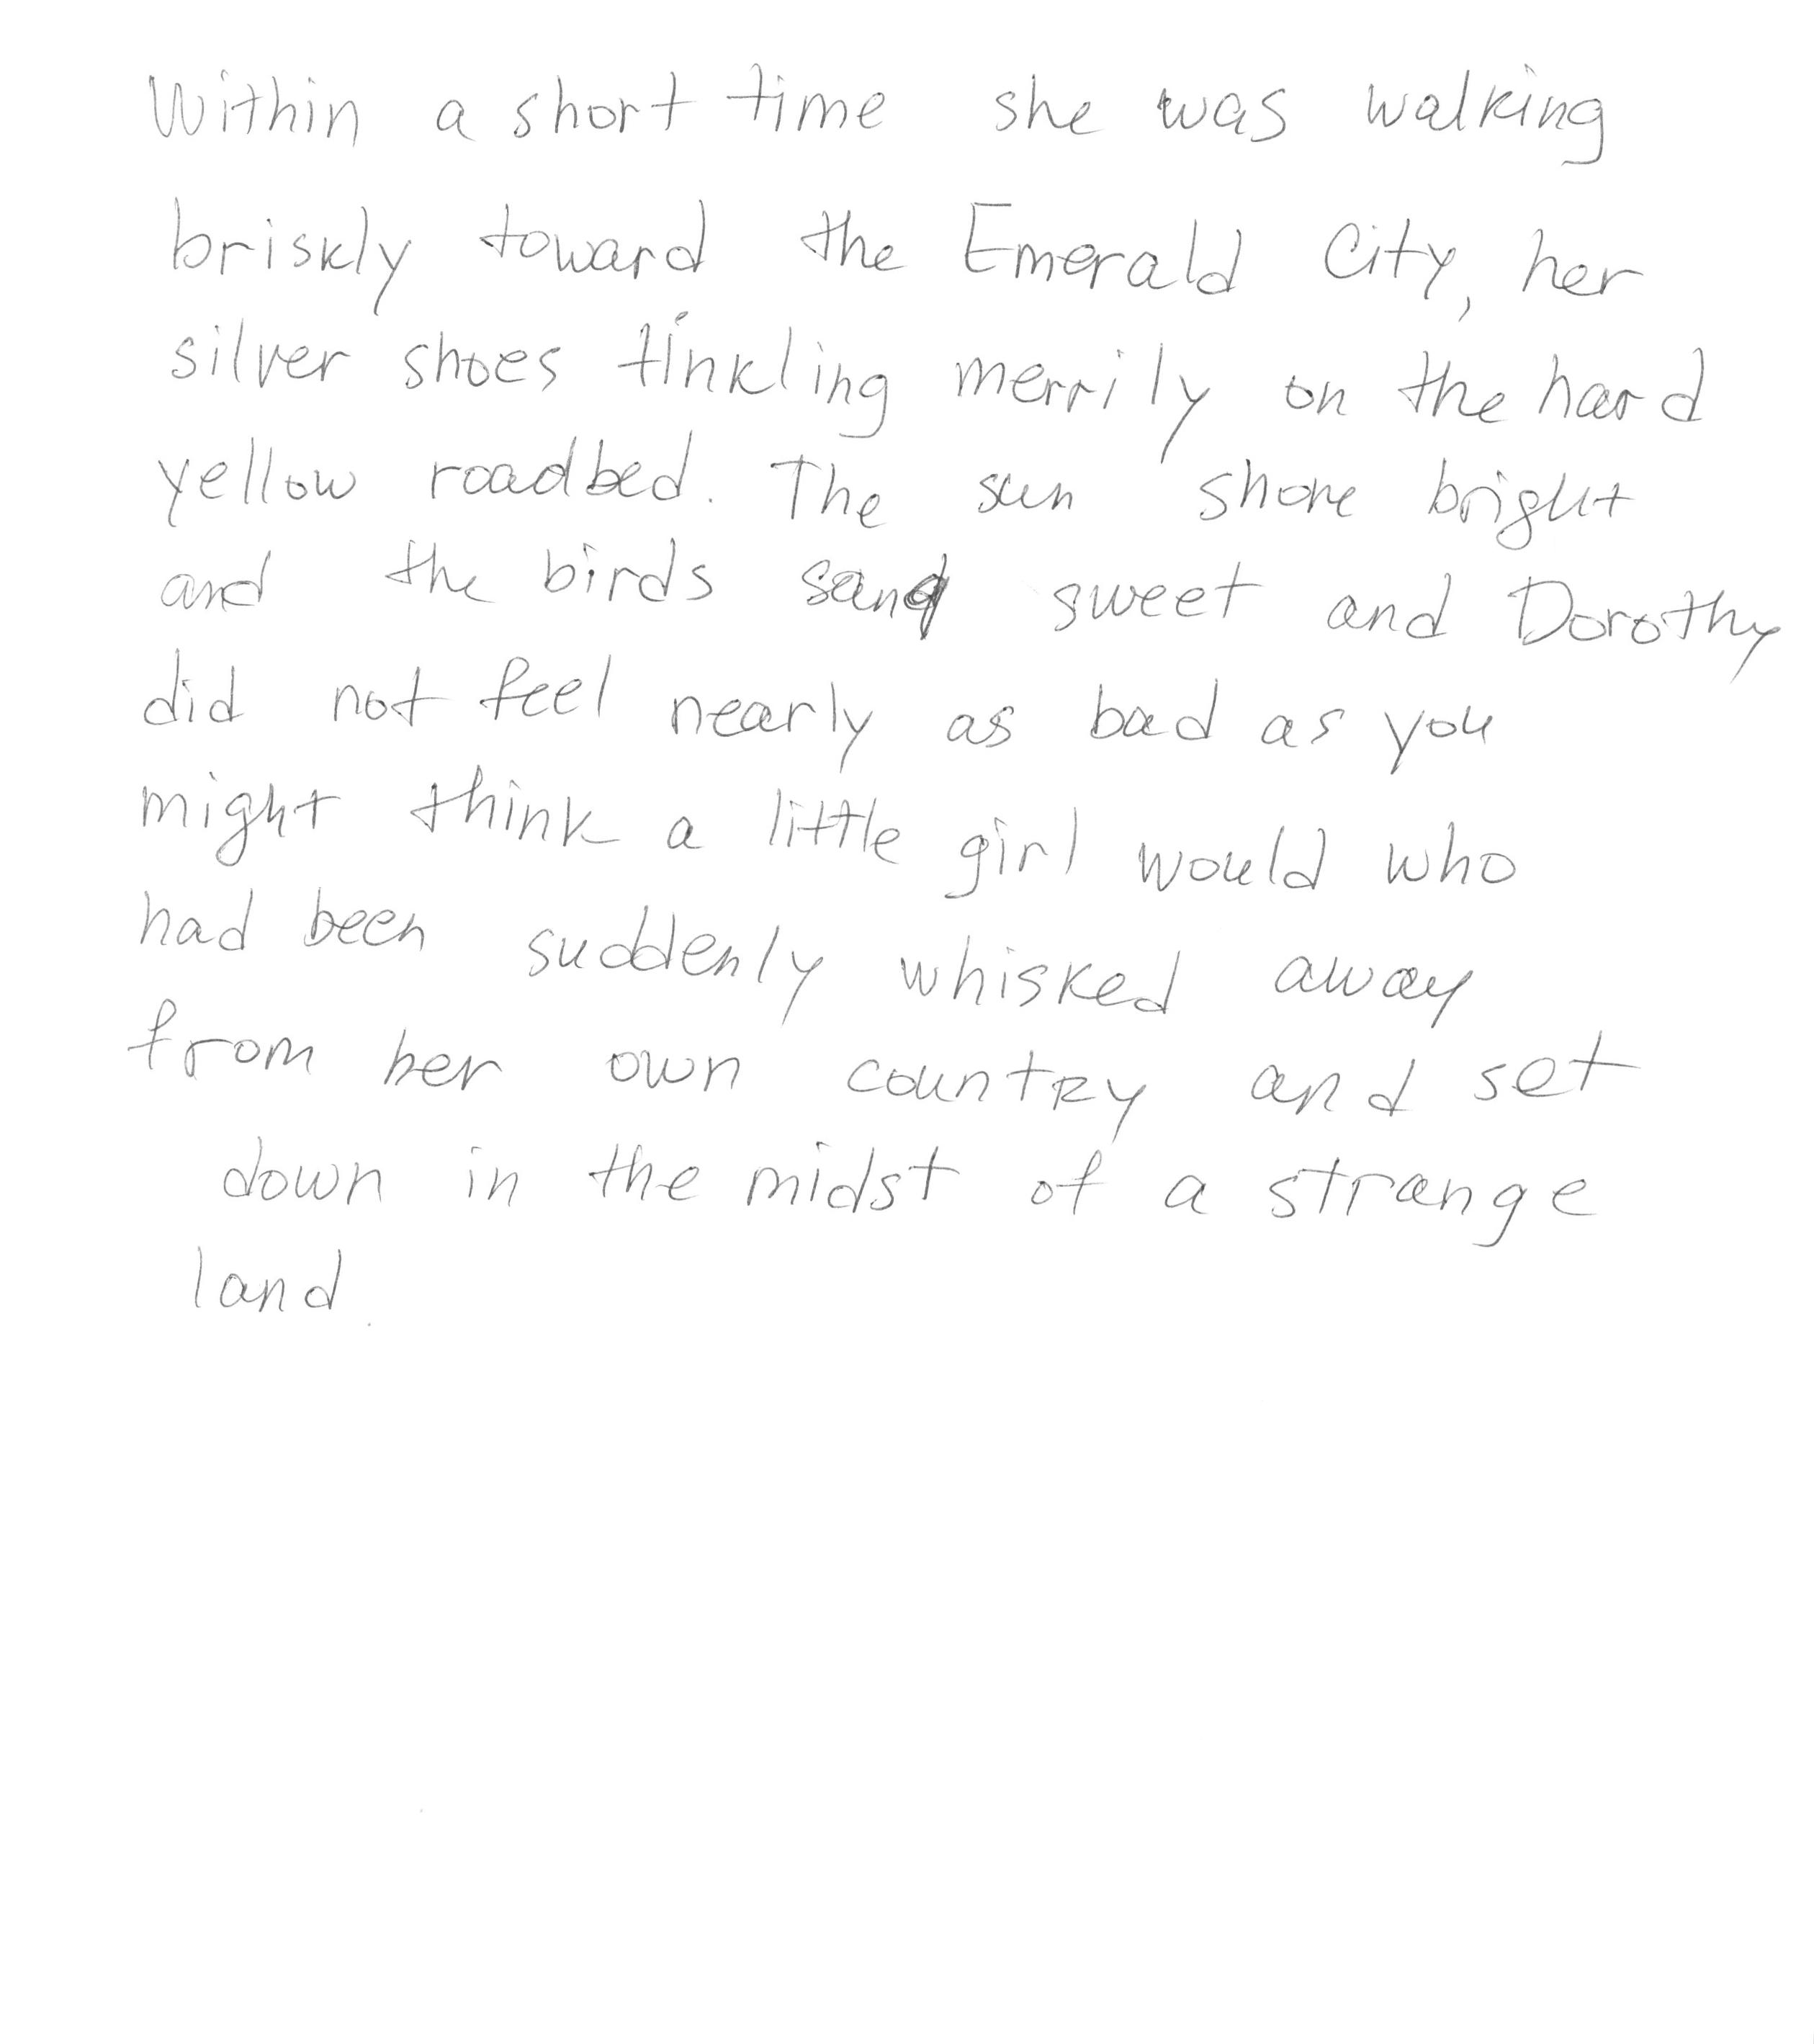 Within a short time she was walking
briskly toward the Emerald City, her
silver shoes tinkling merrily on the hard
yellow roadbed. The sun shone bright
and the birds sang sweet and Dorothy
did not feel nearly as bad as you
might think a little girl would who
had been suddenly whisked away
from her own country and set
down in the midst of a strange
land.